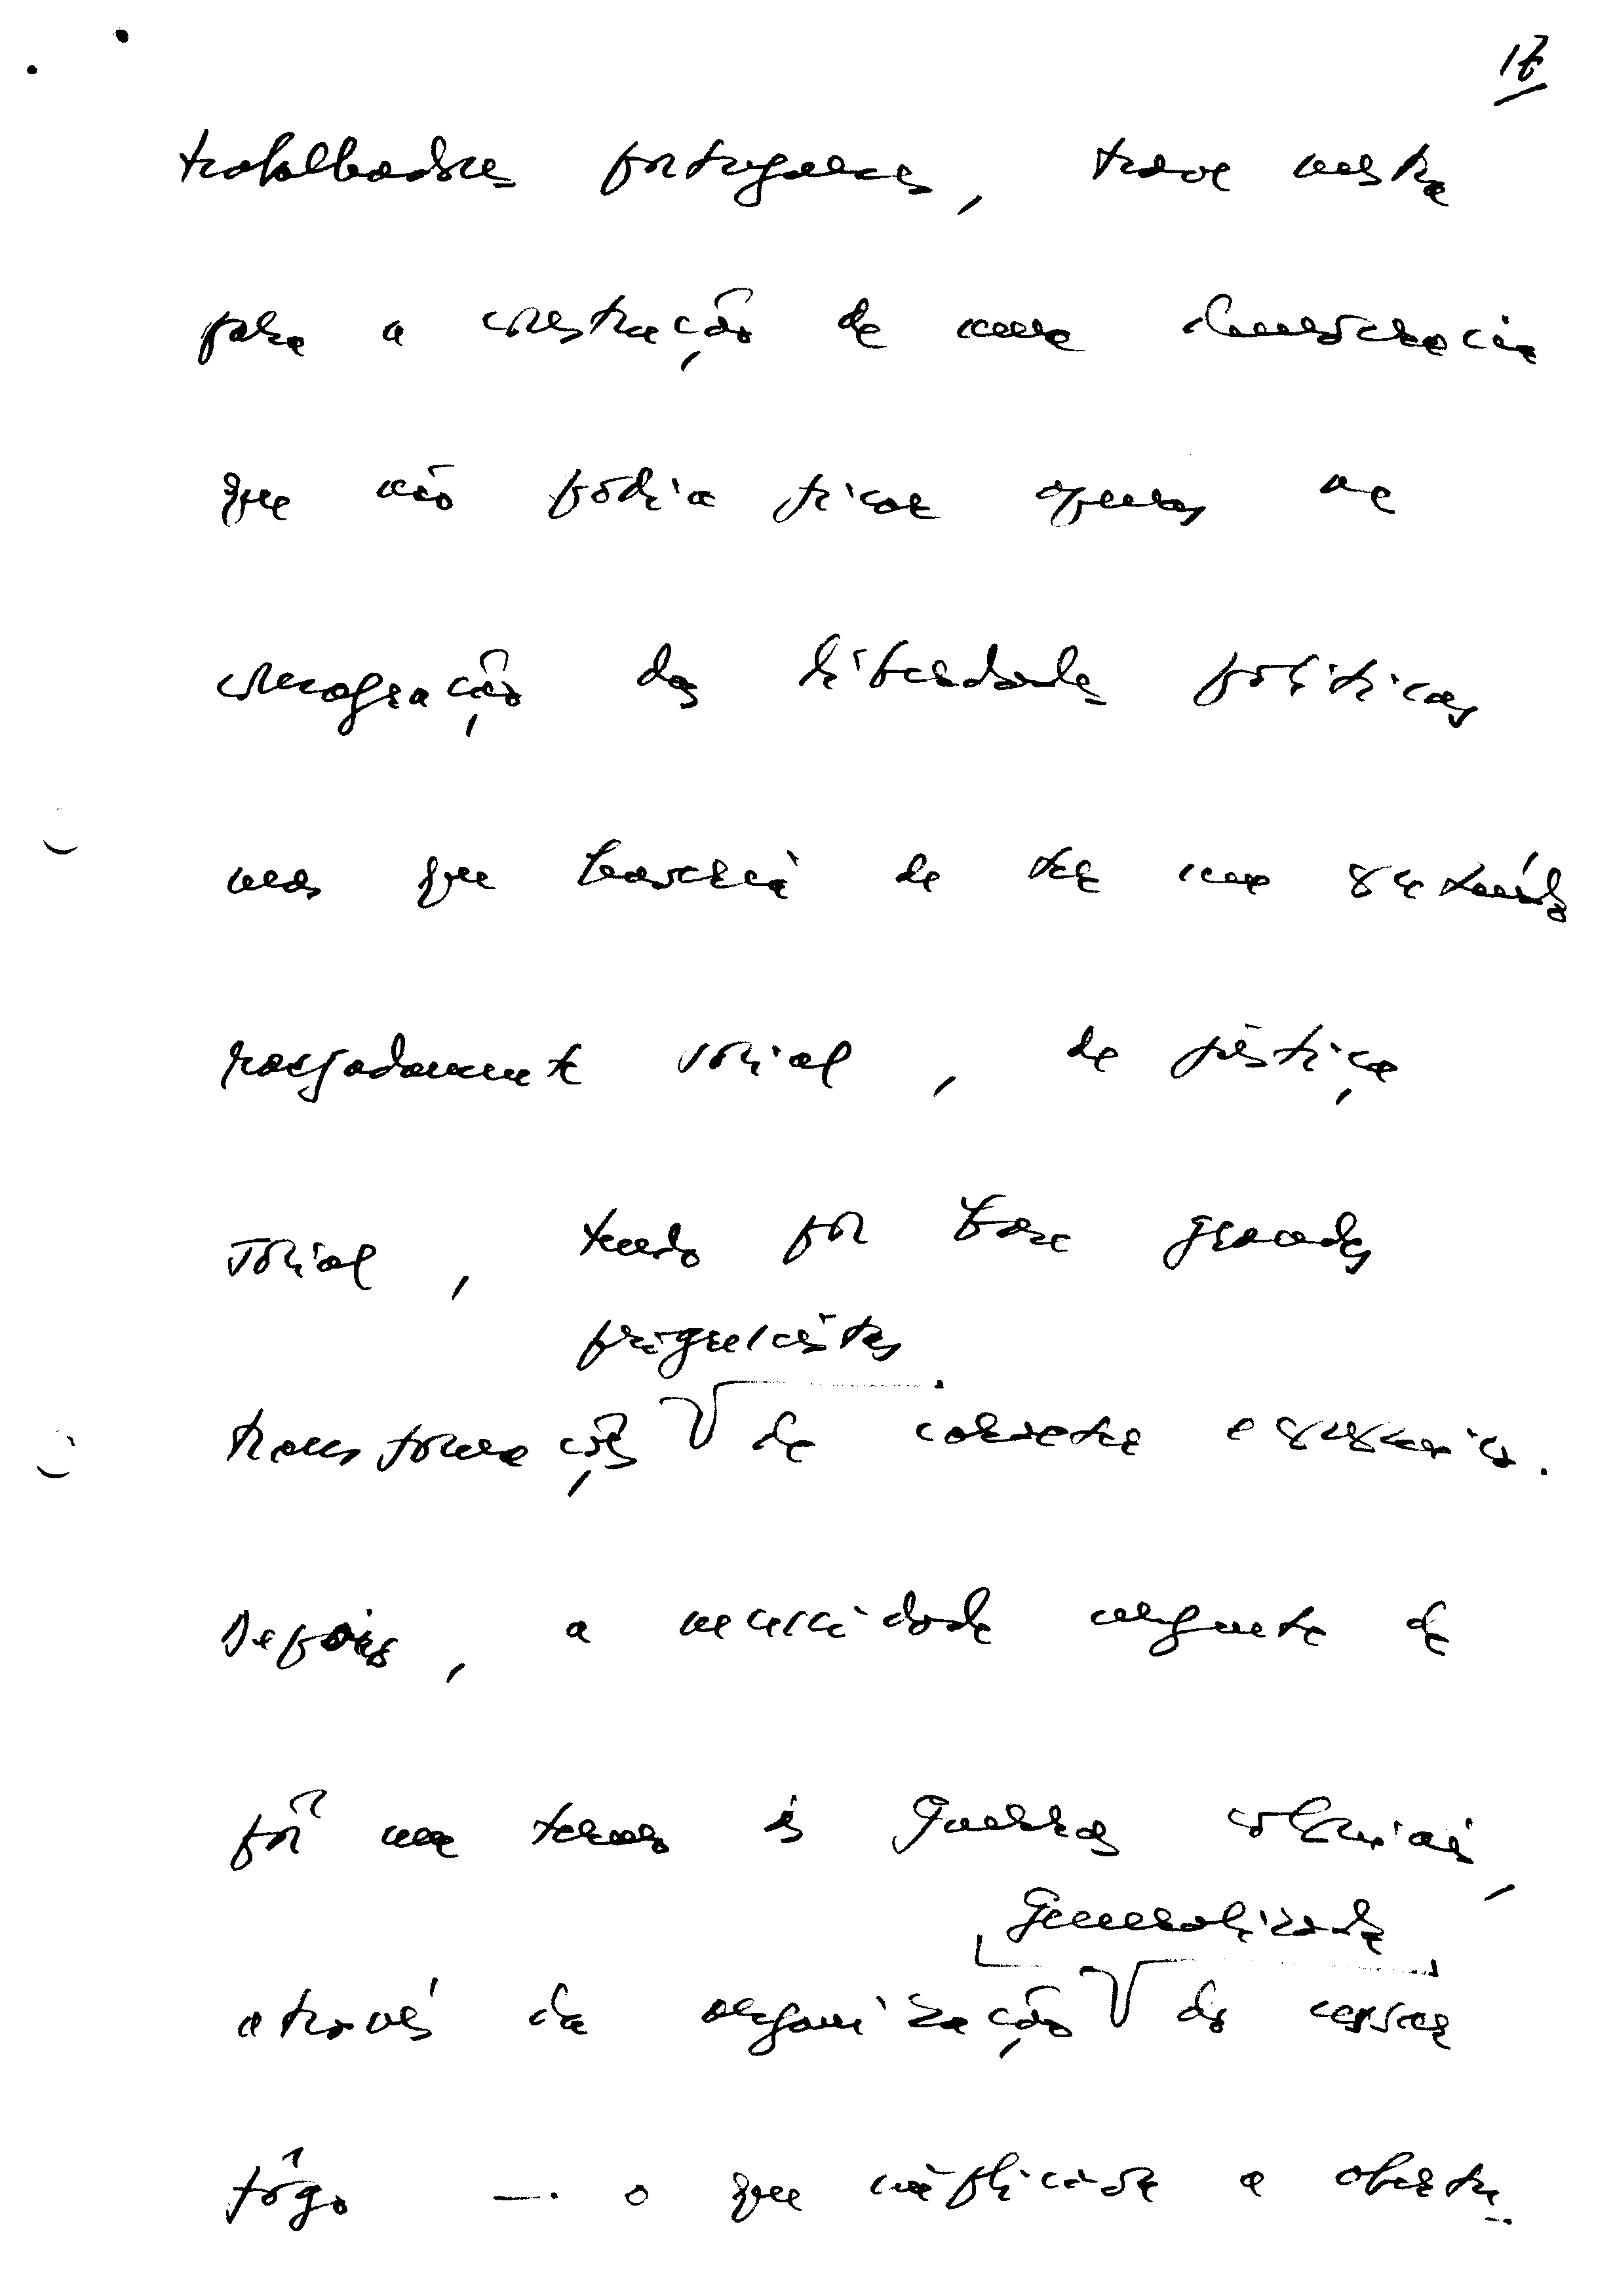 17
trabalhadores portugueses, trave mestra
para a construção de uma democracia
que não podia ficar apenas na
consagração das liberdades políticas
mas que haveria de ter um conteúdo
rasgadamente social, de justiça
social, tendo por base grandes
progressistas
transformações de carácter económico.
Depois, a necessidade urgente de
pôr um termo às guerras coloniais,
Generalizada
através da organização do cessar
fôgo — o que implicava a abertu-